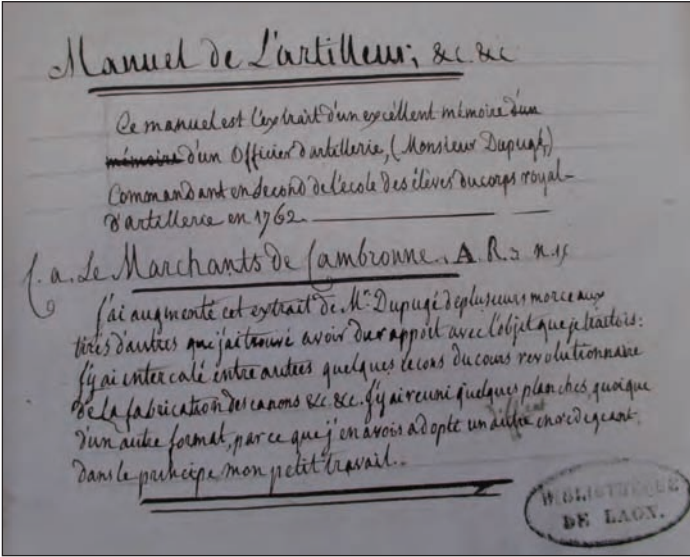 Manuel de L'artilleur; &c. &c
Ce manuel est l'extrait d'un excéllent mémoire d'un
mémoire d'un Officier d'artillerie, (Monsieur Dupugé,)
Commandant en second de l'ecole des élèves du corps royal-
d'artillerie en 1762.
f. a. Le Marchants de Cambronne. A. R.
j'ai augmenté cet extrait de Mr. Dupugé de plusieurs morceaux
tirés d'autres que j'ai trouvé avoir du rapport avec l'objet que je traitois:
j'y ai intercalé entre autres quelques lecons du cours revolutionnaire
de La fabrication des canons &c. &c. j'y ai reuni quelques planches, quoique
d'un autre format, parce que j'en avois adopté un autre en redigeant
dans le principe mon petit travail.
BIBLIOTHEQUE
DE LAON.